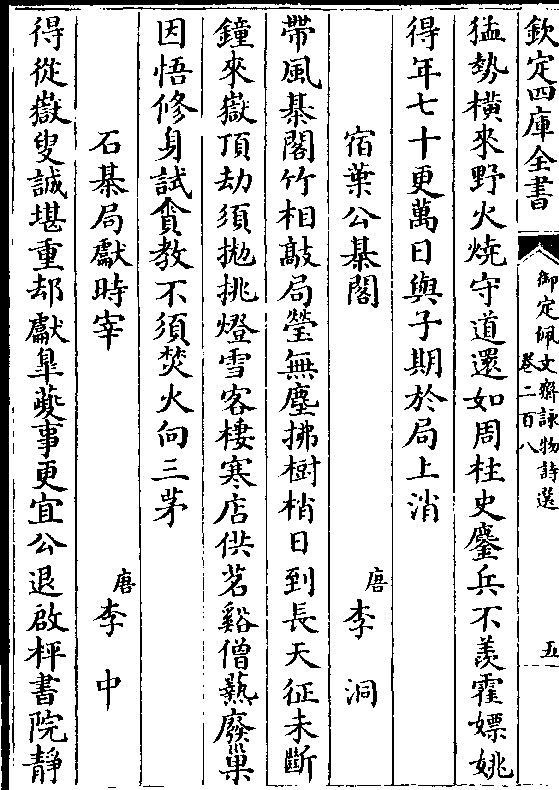 欽定四庫全書
御定佩文齋詠物詩選
卷二百八
五
猛勢橫來野火燒守道還如周柱史鏖兵不羨霍嫖姚
得年七十更萬日與子期於局上消
宿葉公棊閣
唐李洞
帶風棊閣竹相敲局瑩無塵拂樹梢日到長天征未斷
鐘來嶽頂劫須拋挑燈雪客樓寒店供茗谿僧爇廢巢
因悟修身試貪教不須焚火向三茅
石棊局獻時宰
唐李中
得從嶽叟誠堪重却獻臯夔事更宜公退啟枰書院靜